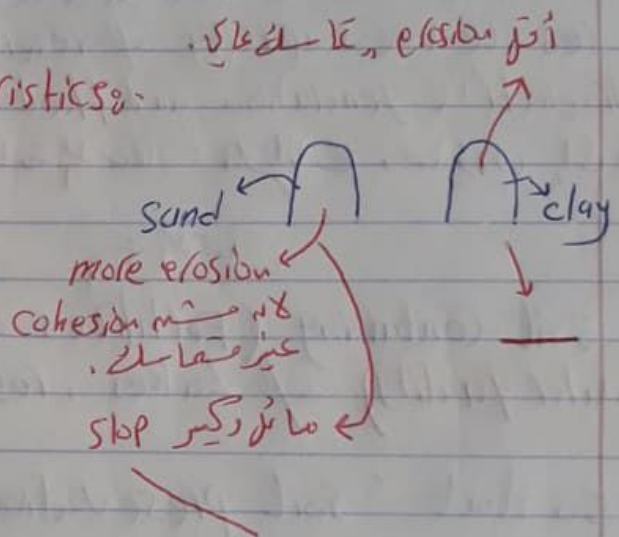 أقل erosion, تماسك عالي.
ristics:-
sand
clay
more erosion
لانه مش cohesion
غير متماسك.
مائل وكبير slop